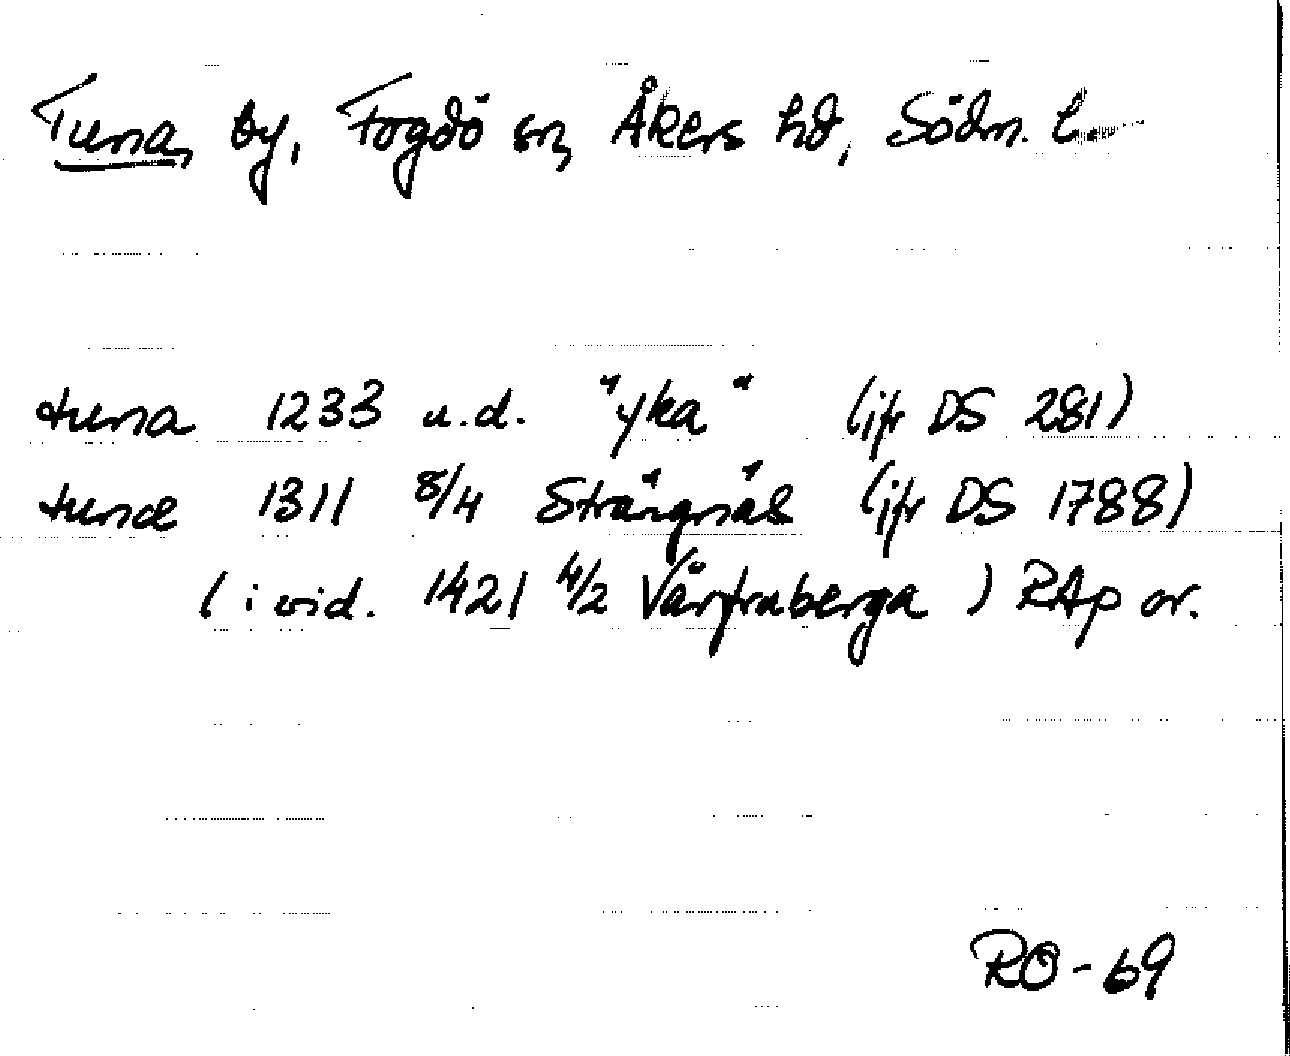 Tuna, by, Fogdö sn, Åkers hd, Södm. l.
tuna 1233 u.d. "yka" (jfr DS 281)
tunæ 1311 8/4 Strängnäs (jfr DS 1788)
(i vid. 1421 4/2 Vårfruberga) RAp or.
RO-69